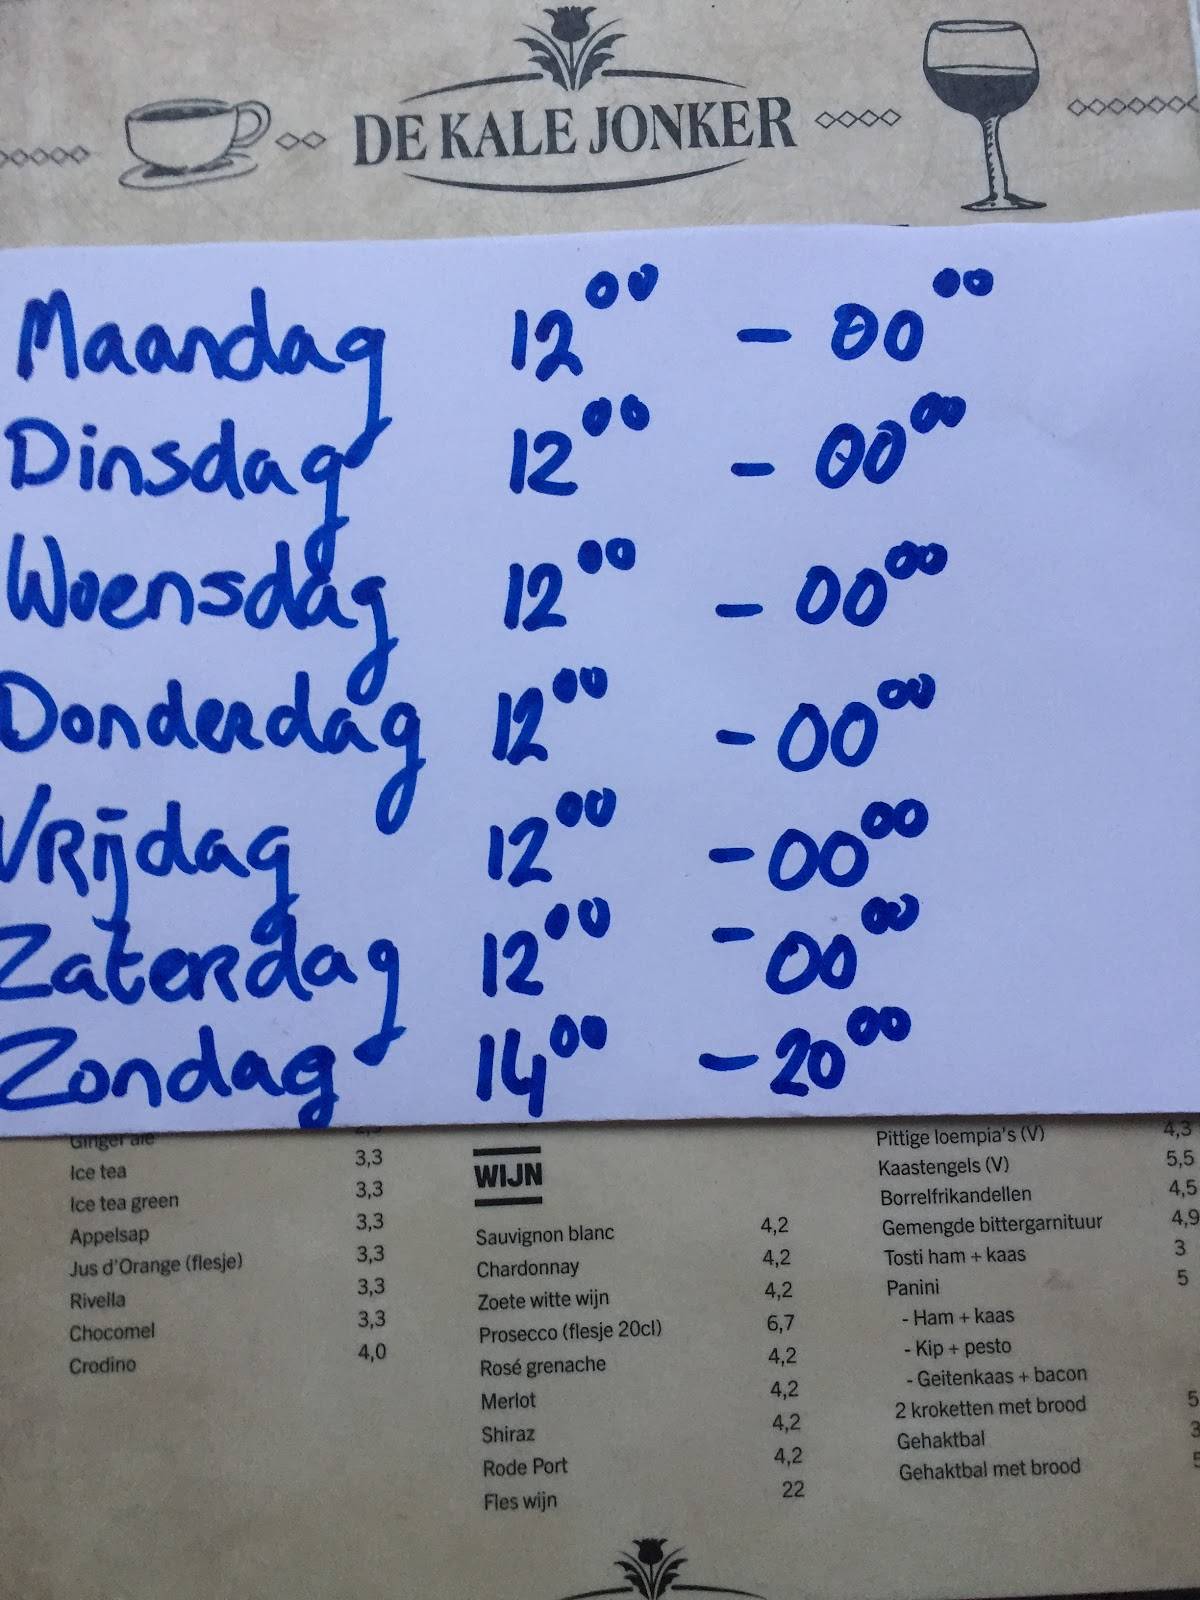 DE KALE JONKER
Maandag 12⁰⁰ - 00⁰⁰
Dinsdag 12⁰⁰ - 00⁰⁰
Woensdag 12⁰⁰ - 00⁰⁰
Donderdag 12⁰⁰ - 00⁰⁰
Vrijdag 12⁰⁰ - 00⁰⁰
Zaterdag 12⁰⁰ - 00⁰⁰
Zondag 14⁰⁰ - 20⁰⁰
Ginger ale
Ice tea 3,3
Ice tea green 3,3
Appelsap 3,3
Jus d'Orange (flesje) 3,3
Rivella 3,3
Chocomel 3,3
Crodino 4,0
WIJN
Sauvignon blanc 4,2
Chardonnay 4,2
Zoete witte wijn 4,2
Prosecco (flesje 20cl) 6,7
Rosé grenache 4,2
Merlot 4,2
Shiraz 4,2
Rode Port 4,2
Fles wijn 22
Pittige loempia's (V) 4,3
Kaastengels (V) 5,5
Borrelfrikandellen 4,5
Gemengde bittergarnituur 4,9
Tosti ham + kaas 3
Panini 5
- Ham + kaas
- Kip + pesto
- Geitenkaas + bacon
2 kroketten met brood 5
Gehaktbal 3
Gehaktbal met brood